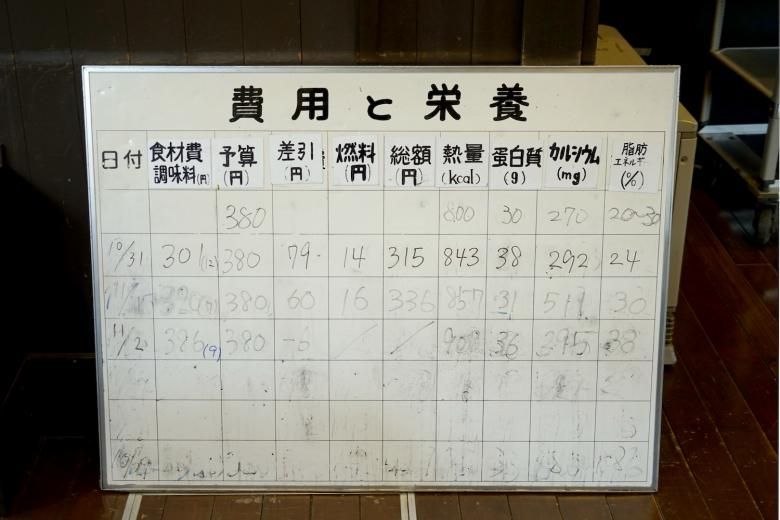 費用と栄養
日付 食材費 調味料(円) 予算(円) 差引(円) 燃料(円) 総額円) 熱量(kcal) 蛋白質(g) カルシウム(mg) 脂肪エネルギー(%)
380 800 30 270 20~30
10/31 301(12) 380 79 14 315 843 38 292 24
11/1 320 380 60 16 336 857 31 511 30
11/2 386(9) 380 -6 / 36 38